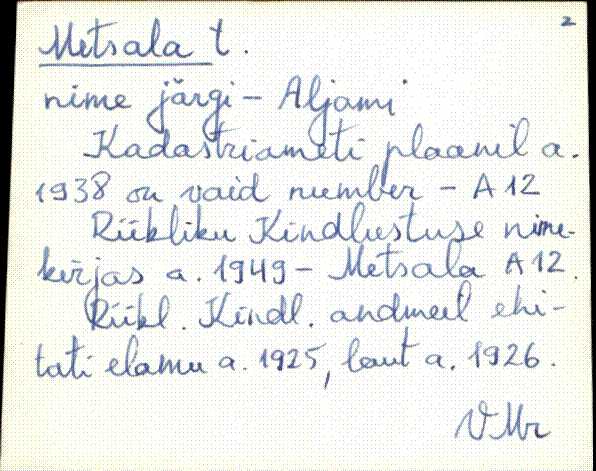 2
Metsala t.
nime järgi - Aljami
Kadastriameti plaanil a.
1938 on vaid number - A 12
Riikliku Kindlustuse nime-
kirjas a. 1949 - Metsala A 12.
Riikl. Kindl. andmeil ehi-
tati elamu a. 1925, laut a. 1926.
VMr